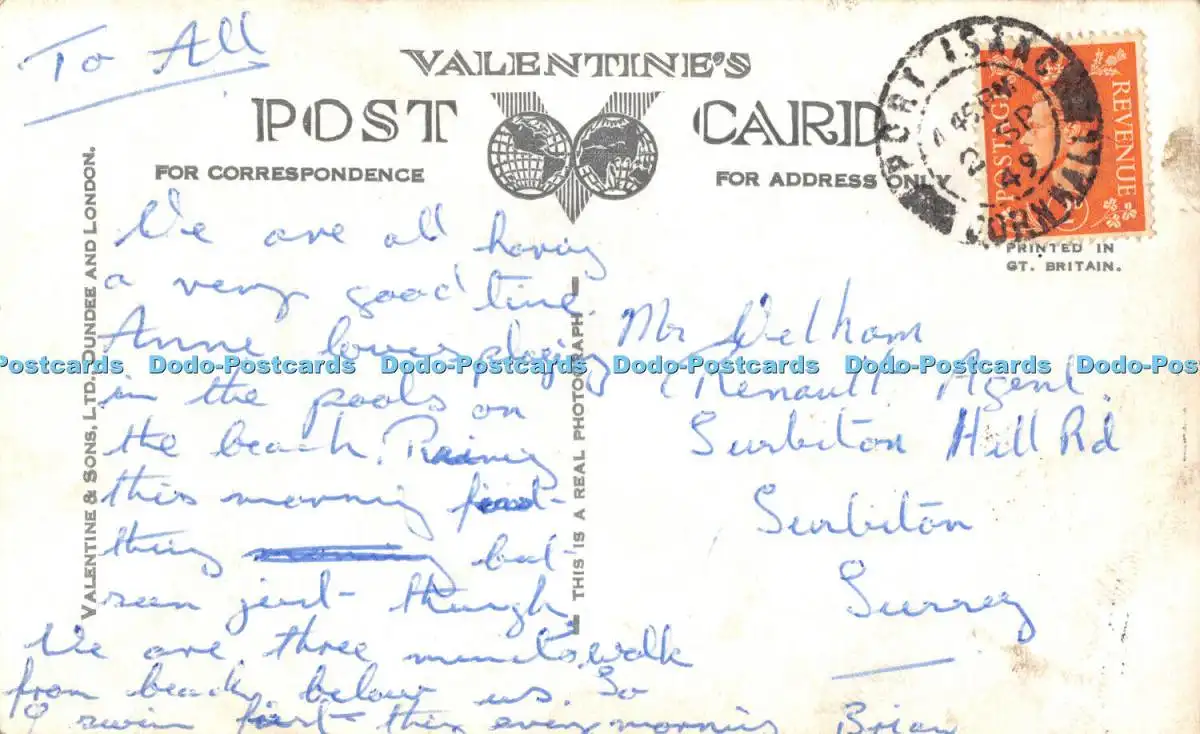 To All
VALENTINE'S
POST CARD
FOR CORRESPONDENCE
FOR ADDRESS ONLY
PORT ISAAC
45 PM
2 SP
49
CORNWALL
POSTAGE
REVENUE
PRINTED IN
GT. BRITAIN.
VALENTINE & SONS, LTD. DUNDEE AND LONDON.
THIS IS A REAL PHOTOGRAPH
We are all having
a very good time.
Anne loves playing
in the pools on
the beach. Raining
this morning first
thing but
seen just though
We are three minuets walk
from beach below us. So
I swim first thing every morning Brian
Mr Welham
(Renault Agent
Surbiton Hill Rd
Surbiton
Surrey
Dodo-Postcards Dodo-Postcards Dodo-Postcards Dodo-Postcards Dodo-Postcards Dodo-Postcards